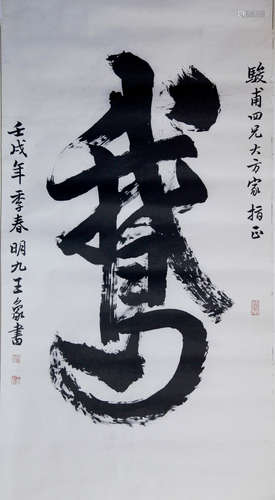 駿甫四兄大方家指正
鵞
壬戌年季春明九王書